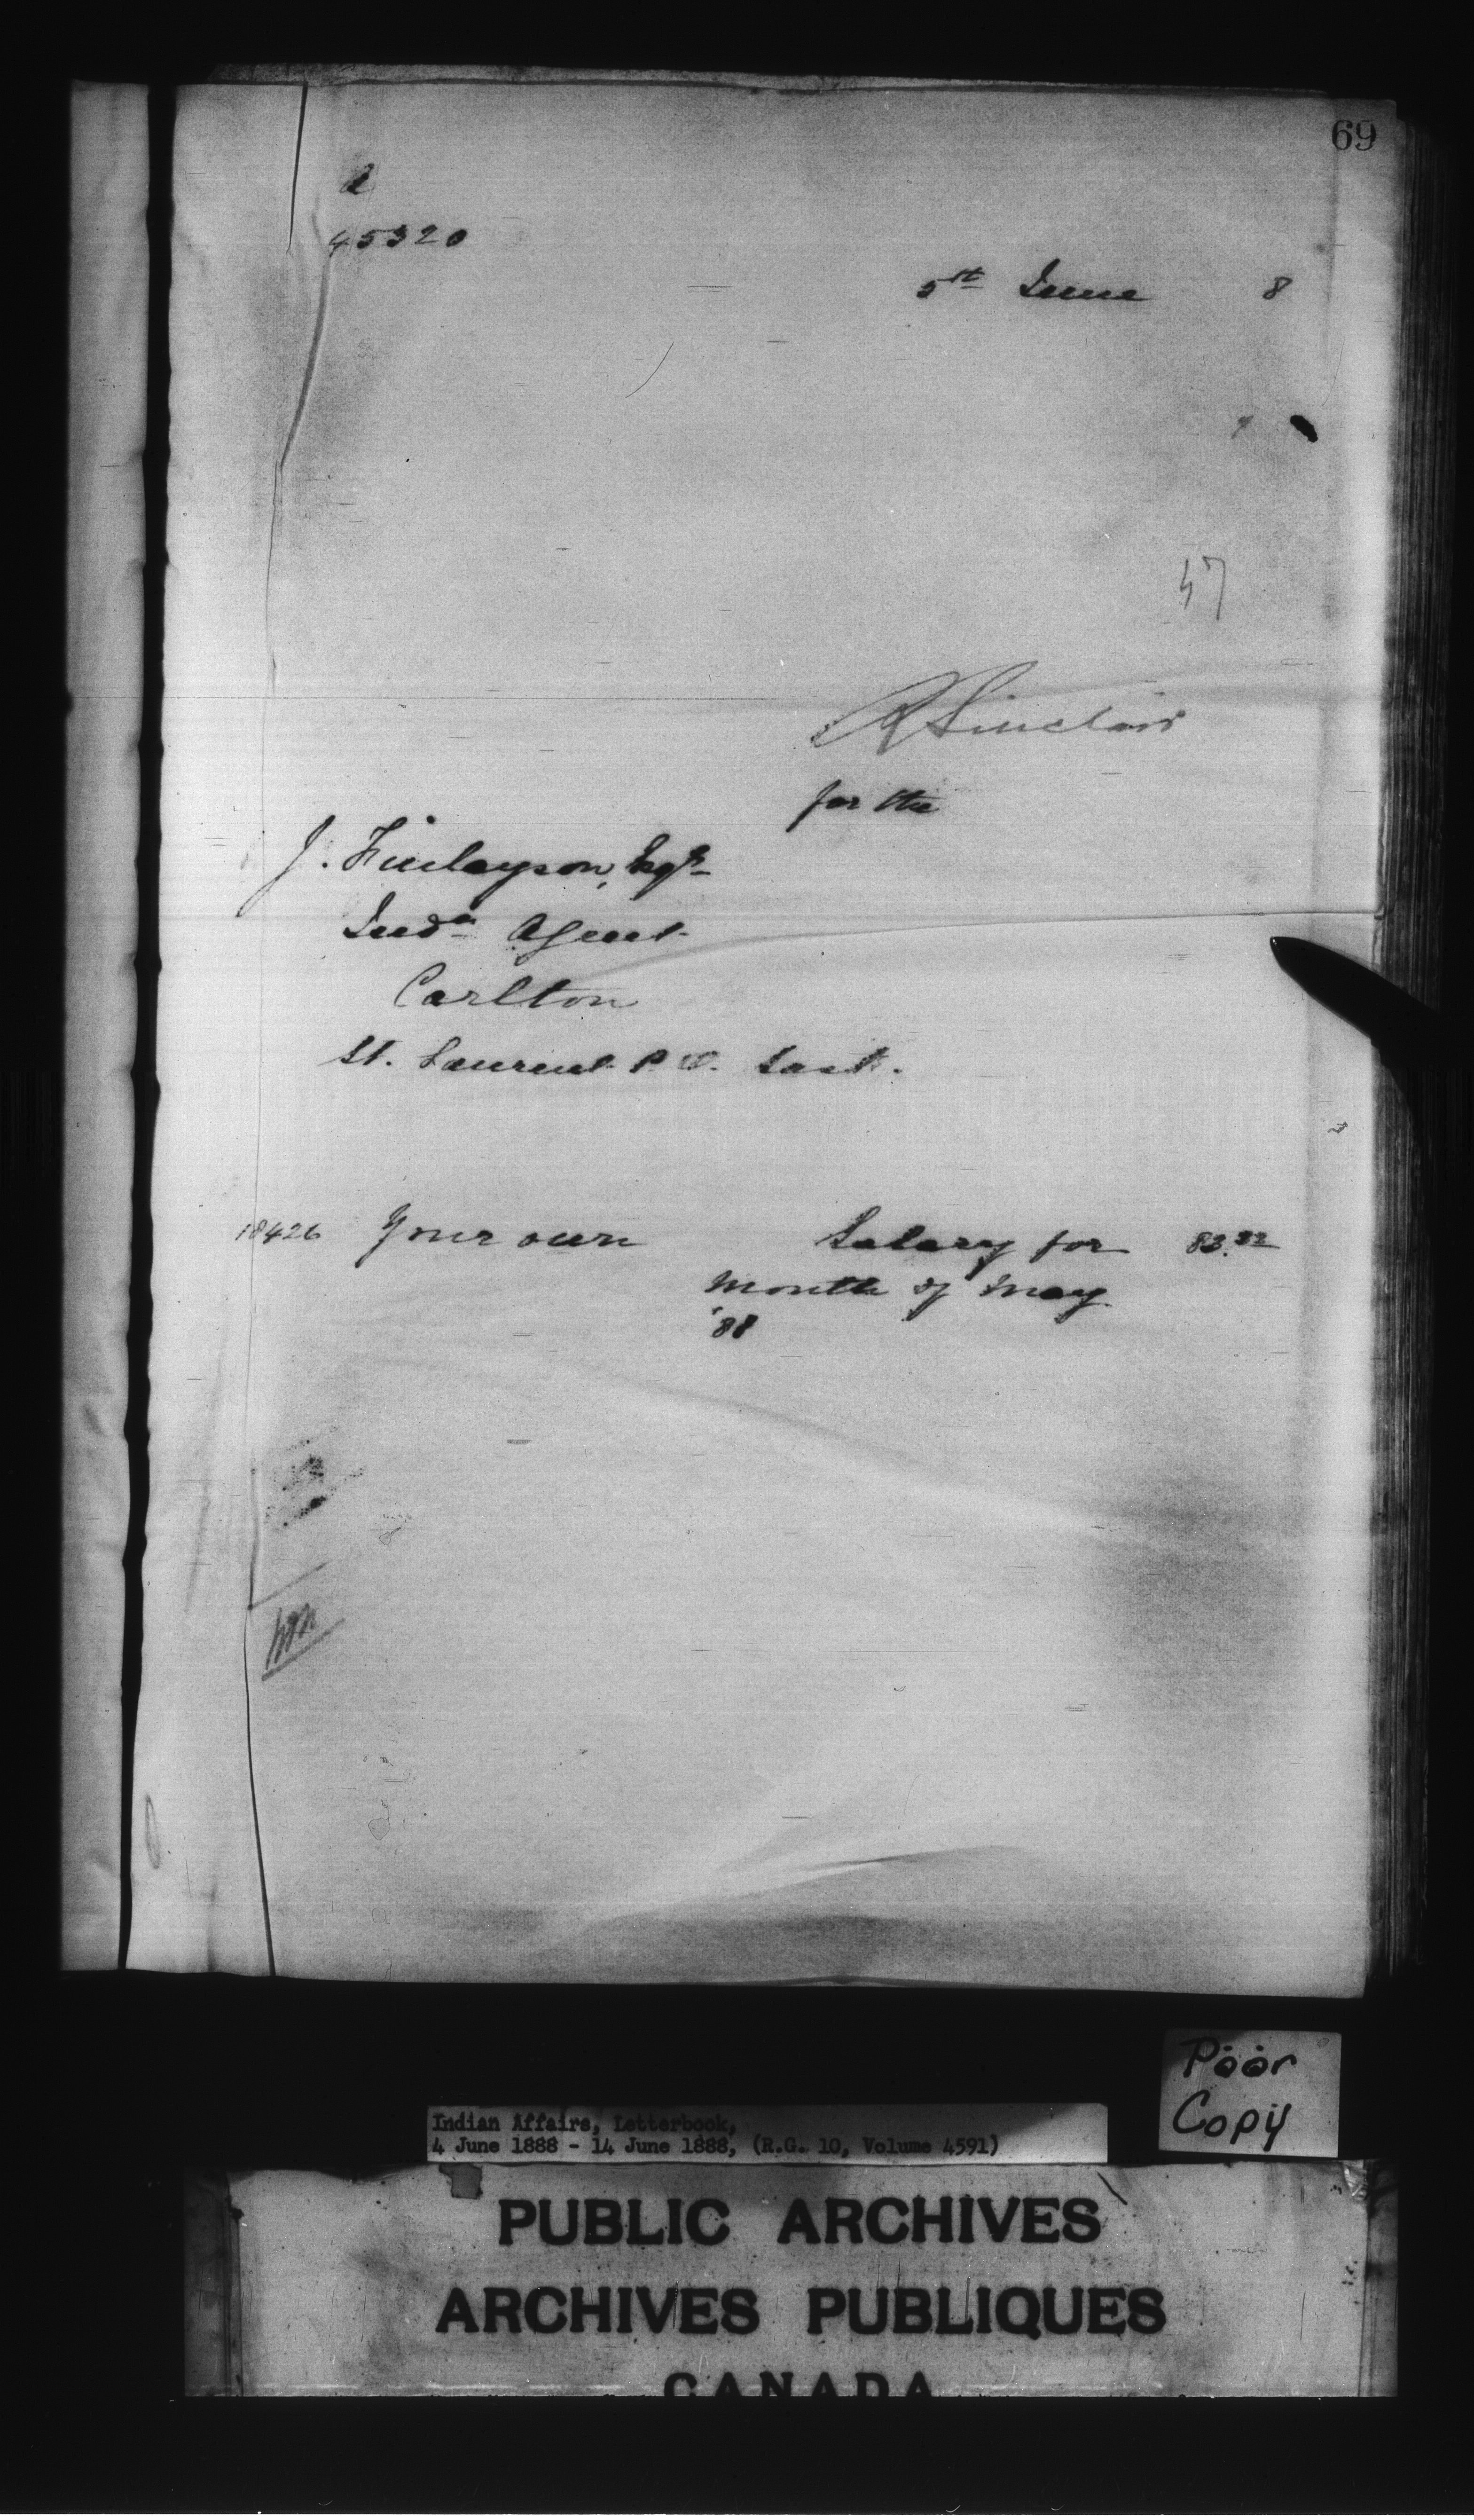 69
45320
5th June 8
57
R Sinclair
for the
J. Finlayson, Esqr
Inda Agent
Carlton
St. Laurent P.O. Sask.
18426 Your own Salary for 83.32
month of May
'88
Poor
Copy
Indian Affairs, Letterbook,
4 June 1888 - 14 June 1888, (R.G. 10, Volume 4591)
PUBLIC ARCHIVES
ARCHIVES PUBLIQUES
CANADA